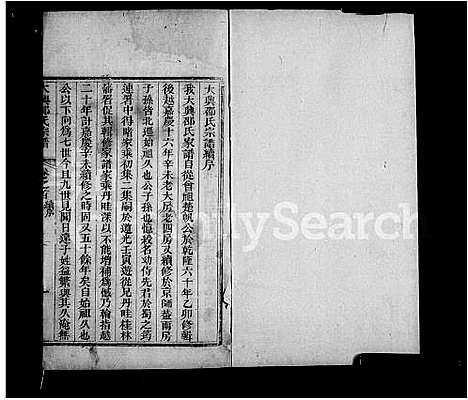 大興邵氏宗譜續序
我大興邵氏家譜自從曾祖楚帆公於乾隆六十年乙卯修輯
後越嘉慶十六年辛未老大房老四房又續修於京師益兩房
子孫皆北遷始祖久也公子孫也憶毅名幼侍先君於蜀之筠
連署中得睹家乘初集二集嗣於道光壬寅遊從兄丹畦桂林
藩署促其輯修家譜家乘丹畦深以不能增補爲憾乃輪指越
二十年計嘉慶辛未續修之時固又五十餘年矣自始祖久也
公以下向爲七世今且九世見聞日遠子姓益繁與其久湮無
大興邵氏宗譜
卷之首 續序
FamilySearch